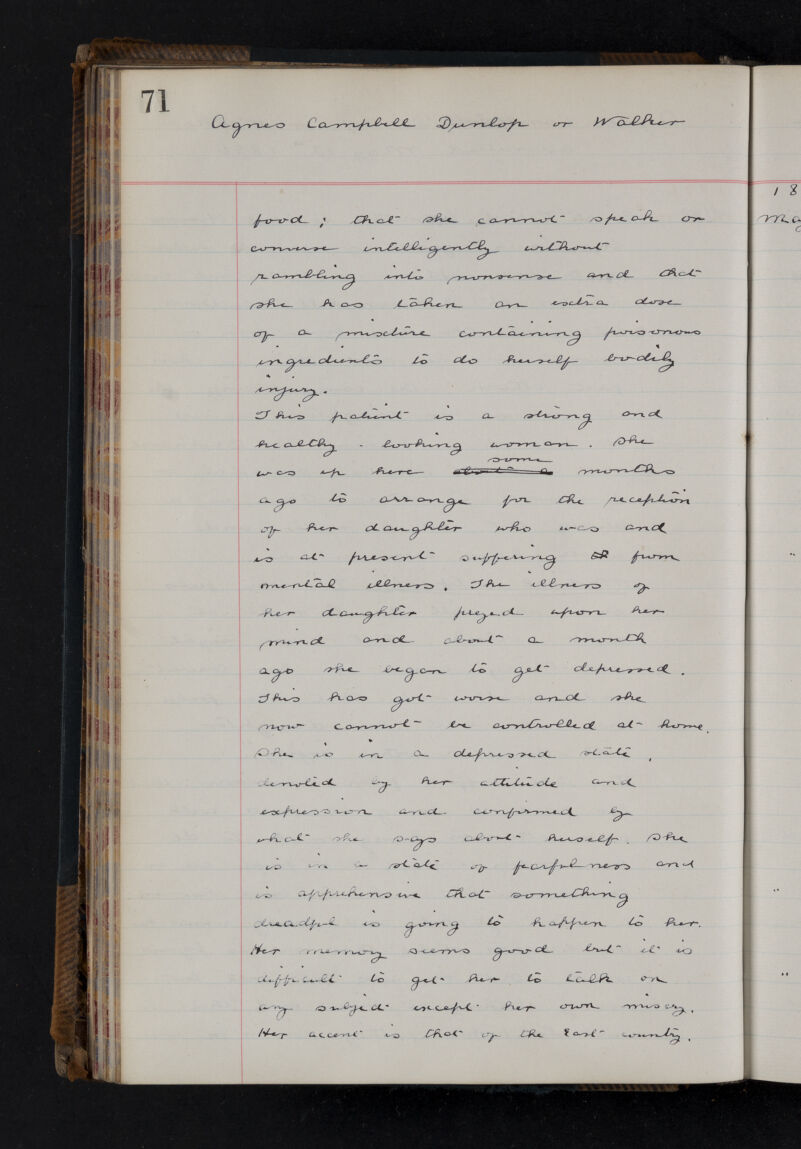 71
Agnes Campbell Dunlop or Walker
food; that she cannot speak or
converse intelligently without
rambling into nonsense and that
she has taken an extra dose
of a mixture containing poisonous
ingredients to do herself bodily
injury.
This patient is a strong and
healthy-looking woman. She
some
was up here about a months
ago to arrange for the reception
of her daughter who was and
is at present suffering from
mental illness. The illness of
her daughter preyed upon her
mind and about a month
ago she began to get depressed.
This has got worse and she
now cannot be controlled at home.
She is in a depressed state,
denoted by her attitude and
expression and confirmed by
what she says about herself. She
is in a state of fearfulness and
is apprehensive that something
dreadful is going to happen to her.
Her memory seems good but it is
difficult to get her to talk on
any subject except her own misery.
Her accent is that of the East country.
18
Ma